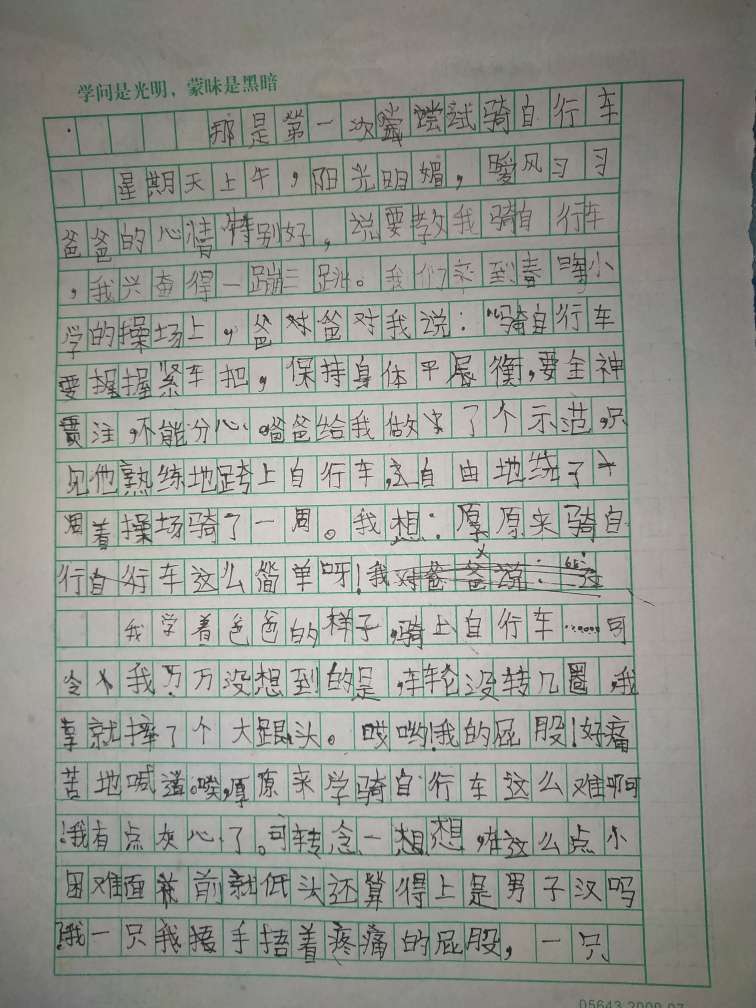 学问是光明，蒙昧是黑暗
那是第一次尝尝试骑自行车
星期天上午，阳光明媚，暖风习习
爸爸的心情特别好，说要教我骑自行车
，我兴奋得一蹦三跳。我们来到春晖小
学的操场上，爸对爸对我说：“骑自行车
要握握紧车把，保持身体平衡，要全神
贯注，不能分心。爸爸给我做了个示范，只
见他熟练地跨上自行车，自由地绕了
周着操场骑了一周。我想：原来骑自
行自行车这么简单呀！我对爸爸说：
我学着爸爸的样子，骑上自行车……可
令人我万万没想到的是，车轮没转几圈，我
就摔了个大跟头。哎哟！我的屁股！好痛
苦地喊道。唉，原来学骑自行车这么难啊
！我有点灰心了。可转念一想想，在这么点小
困难面前前就低头还算得上是男子汉吗
我一只我捂手捂着疼痛的屁股，一只
05643.2009.07